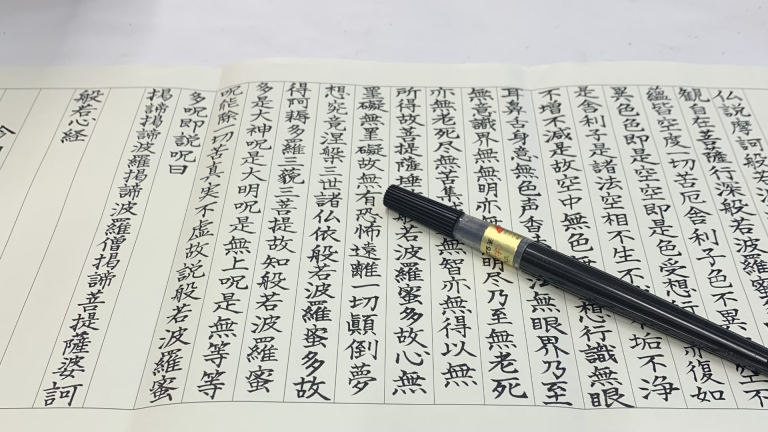 仏説摩訶般若波
観自在菩薩行深般若波羅蜜
蘊皆空度一切苦厄舎利子色不異空不
異色色即是空空即是色受想行亦復如
是舎利子是諸法空相不生不垢不浄
不増不減是故空中無色無想行識無眼
耳鼻舌身意無色声香法無眼界乃至
無意識界無無明亦無明尽乃至無老死
亦無老死尽無苦集無智亦無得以無
所得故菩提薩埵般若波羅蜜多故心無
罣礙無罣礙故無有恐怖遠離一切顛倒夢
想究竟涅槃三世諸仏依般若波羅蜜多故
得阿耨多羅三藐三菩提故知般若波羅蜜
多是大神呪是大明呪是無上呪是無等等
呪能除一切苦真実不虚故説般若波羅蜜
多呪即説呪曰
揭諦揭諦波羅揭諦波羅僧揭諦菩提薩婆訶
般若心経